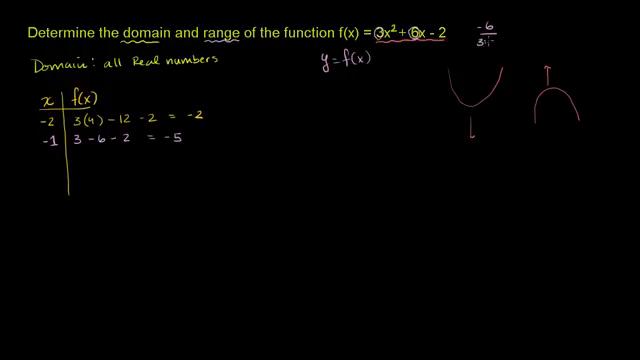 Determine the domain and range of the function f(x) = 3x² + 6x - 2
-6
Domain: all Real numbers
y = f(x)
x f(x)
-2 3(4) - 12 - 2 = -2
-1 3 - 6 - 2 = -5